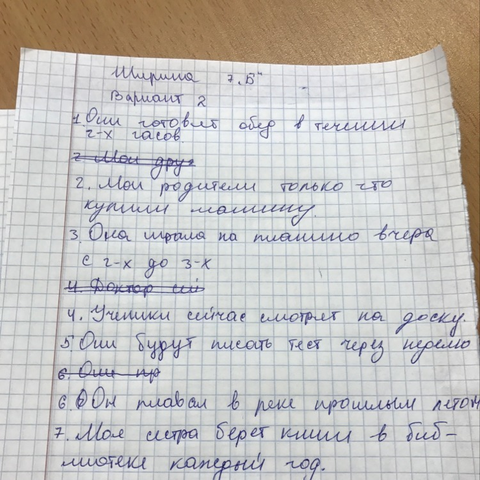 Ширина 7 „Б"
Вариант 2
1. Они готовят обед в течении
2-х часов.
2. Мои друг
2. Мои родители только что
купили машину
3. Она играла на пианино вчера
с 2-х до 3-х
4. Доктор
4. Ученики сейчас смотрят на доску.
5. Они будут писать тест через неделю
6. Они пр
6. Он плавал в реке прошлым летом
7. Моя сестра берет книги в биб-
лиотеке каждый год.